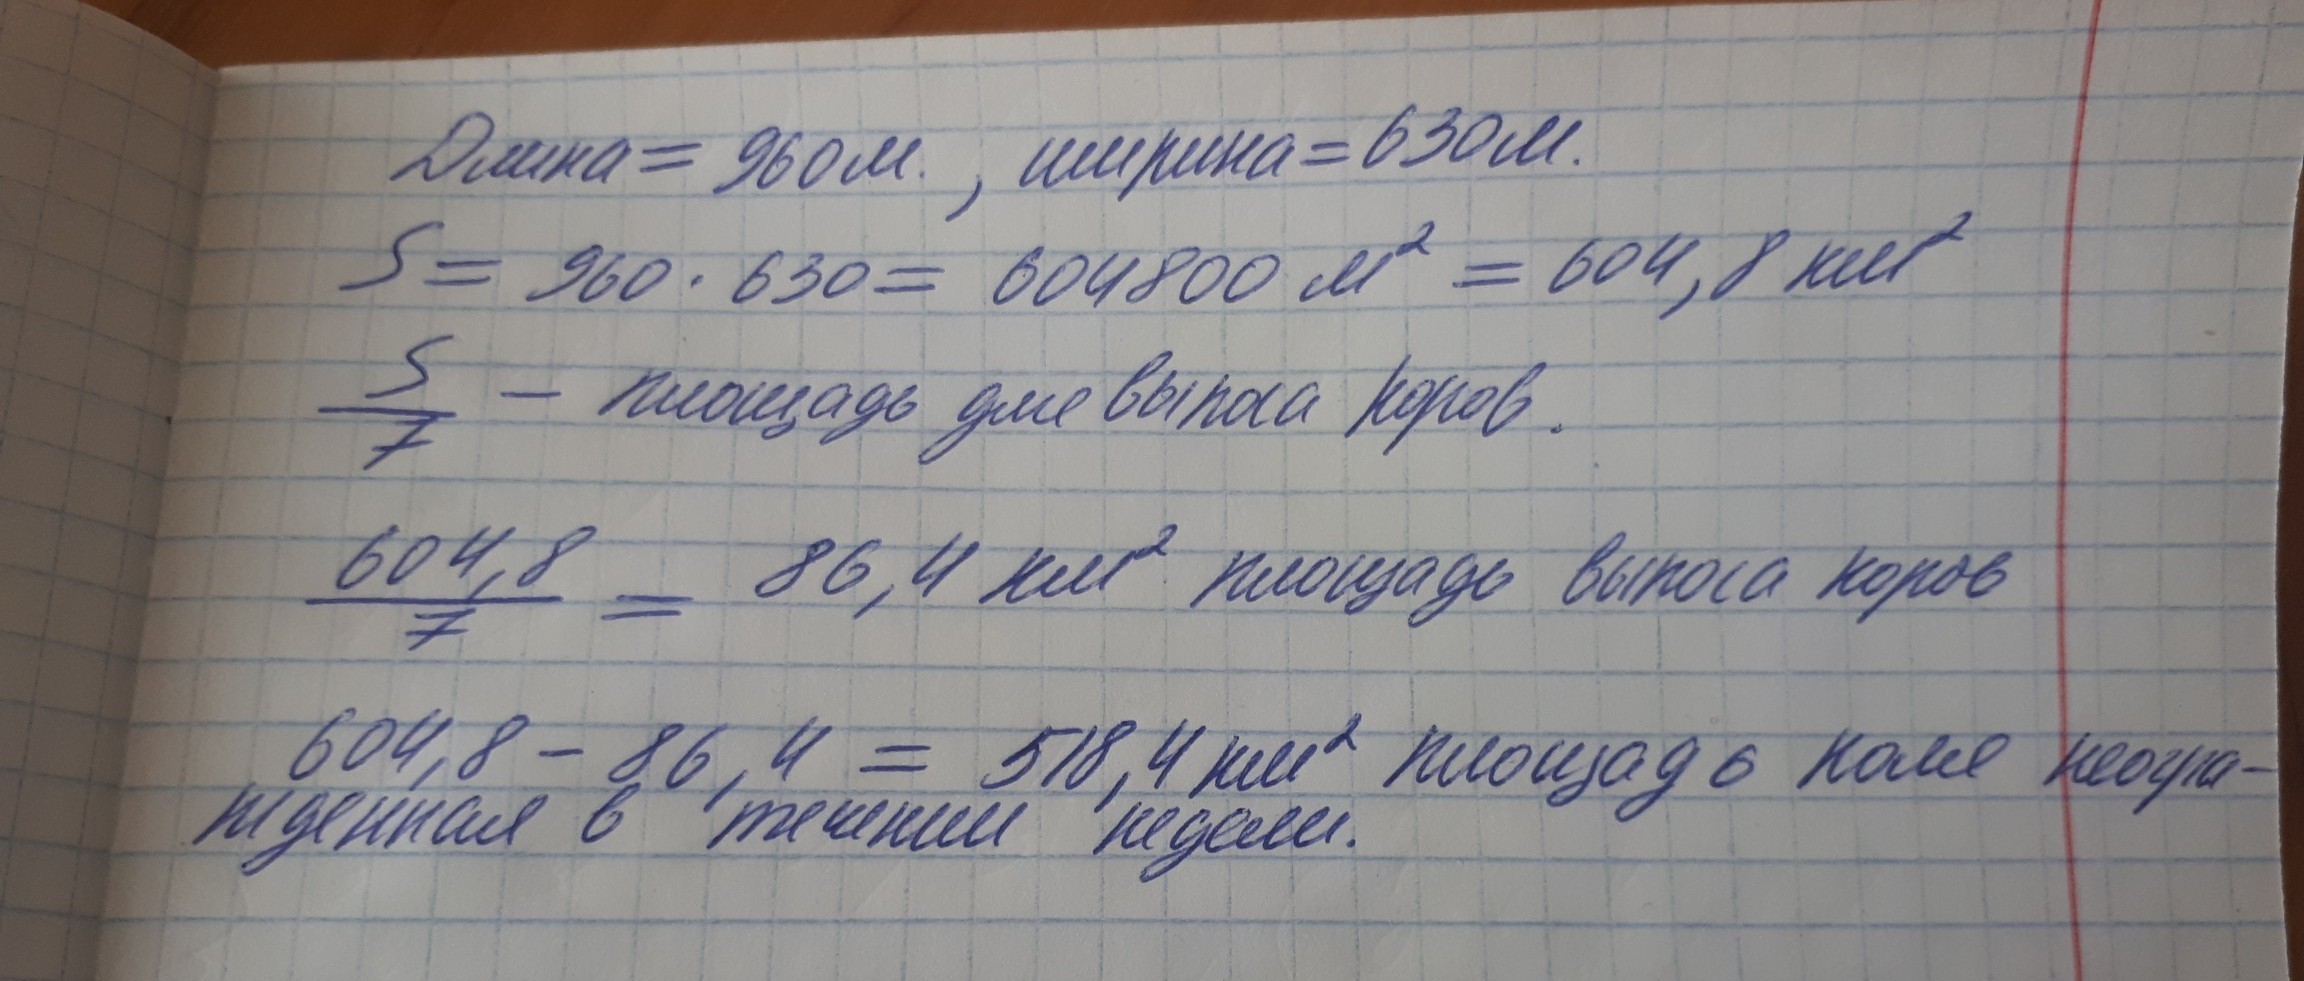 Длина = 960 м. , ширина = 630 м.
S = 960 · 630 = 604800 м² = 604,8 км²
S/7 – площадь для выпоса коров.
604,8/7 = 86,4 км² площадь выпоса коров
604,8 – 86,4 = 518,4 км² площадь поля неогра-
жденная в течении недели.